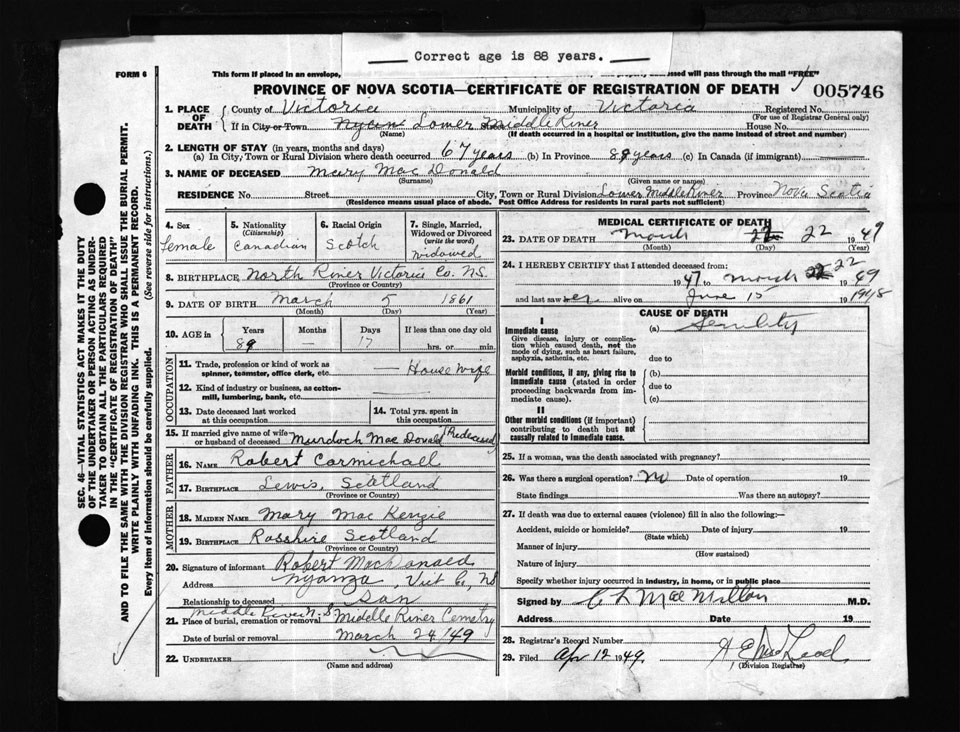 Correct age is 88 years.
FORM 6
This form if placed in an envelope, will pass through the mail "FREE"
PROVINCE OF NOVA SCOTIA—CERTIFICATE OF REGISTRATION OF DEATH
005746
1. PLACE OF DEATH
County of Victoria Municipality of Victoria Registered No.
(For use of Registrar General only)
If in City or Town Lower Middle River House No.
(Name) (If death occurred in a hospital or institution, give the name instead of street and number)
2. LENGTH OF STAY (in years, months and days)
(a) In City, Town or Rural Division where death occurred 67 years (b) In Province 89 years (c) In Canada (if immigrant)
3. NAME OF DECEASED Mary Mac Donald
(Surname) (Given name or names)
RESIDENCE No. Street City, Town or Rural Division Lower Middle River Province Nova Scotia
(Residence means usual place of abode. Post Office Address for residents in rural parts not sufficient)
4. Sex
Female
5. Nationality
(Citizenship)
Canadian
6. Racial Origin
Scotch
7. Single, Married, Widowed or Divorced
(write the word)
Widowed
8. BIRTHPLACE North River Victoria Co. N.S.
(Province or Country)
9. DATE OF BIRTH March 5 1861
(Month) (Day) (Year)
10. AGE in
Years Months Days If less than one day old
89 — 17 hrs. or min.
OCCUPATION
11. Trade, profession or kind of work as spinner, teamster, office clerk, etc. — House Wife
12. Kind of industry or business, as cotton-mill, lumbering, bank, etc.
13. Date deceased last worked at this occupation
14. Total yrs. spent in this occupation
15. If married give name of wife or husband of deceased Murdoch Mac Donald
FATHER
16. NAME Robert Carmichael
17. BIRTHPLACE Lewis, Scotland
(Province or Country)
MOTHER
18. MAIDEN NAME Mary Mac Kenzie
19. BIRTHPLACE Rosshire Scotland
(Province or Country)
20. Signature of informant Robert MacDonald
Address Nyanza, Vict Co, NS
Relationship to deceased Son
Middle River N.S
21. Place of burial, cremation or removal Middle River Cemetry
Date of burial or removal March 24/49
22. UNDERTAKER
(Name and address)
MEDICAL CERTIFICATE OF DEATH
23. DATE OF DEATH March 22 1949
(Month) (Day) (Year)
24. I HEREBY CERTIFY that I attended deceased from:
1947 to March 22 1949
and last saw her alive on June 15 1948
CAUSE OF DEATH
I
Immediate cause
Give disease, injury or complication which caused death, not the mode of dying, such as heart failure, asphyxia, asthenia, etc.
(a) Senility
due to
Morbid conditions, if any, giving rise to immediate cause (stated in order proceeding backwards from immediate cause).
(b)
due to
(c)
II
Other morbid conditions (if important) contributing to death but not causally related to immediate cause.
25. If a woman, was the death associated with pregnancy?
26. Was there a surgical operation? No Date of operation 19
State findings Was there an autopsy?
27. If death was due to external causes (violence) fill in also the following:—
Accident, suicide or homicide? Date of injury 19
(State which)
Manner of injury
(How sustained)
Nature of injury
Specify whether injury occurred in industry, in home, or in public place
Signed by C L MacMillan M.D.
Address Date 19
28. Registrar's Record Number
29. Filed Apr 12 1949.
(Division Registrar)
SEC. 46—VITAL STATISTICS ACT MAKES IT THE DUTY
OF THE UNDERTAKER OR PERSON ACTING AS UNDER-
TAKER TO OBTAIN ALL THE PARTICULARS REQUIRED
IN THE "CERTIFICATE OF REGISTRATION OF DEATH"
AND TO FILE THE SAME WITH THE DIVISION REGISTRAR WHO SHALL ISSUE THE BURIAL PERMIT.
WRITE PLAINLY WITH UNFADING INK. THIS IS A PERMANENT RECORD.
Every item of information should be carefully supplied. (See reverse side for instructions.)